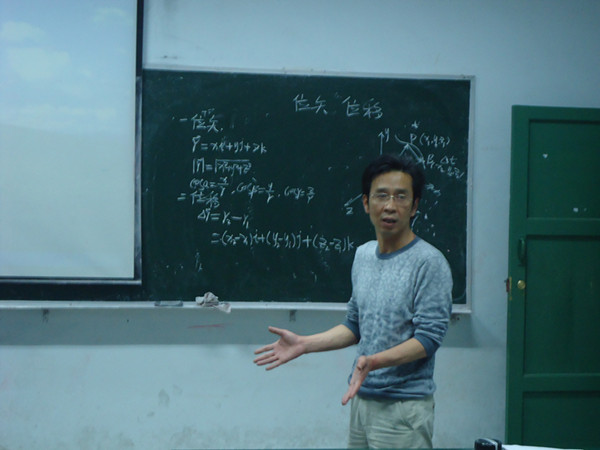 位矢 位移
一 位矢
r⃗ = xi + yj + zk
|r⃗| = √x²+y²+z²
cosα = x/r, cosβ = y/r, cosγ = z/r
二 位移
Δr⃗ = r₂ - r₁
= (x₂-x₁)i + (y₂-y₁)j + (z₂-z₁)k
y
z